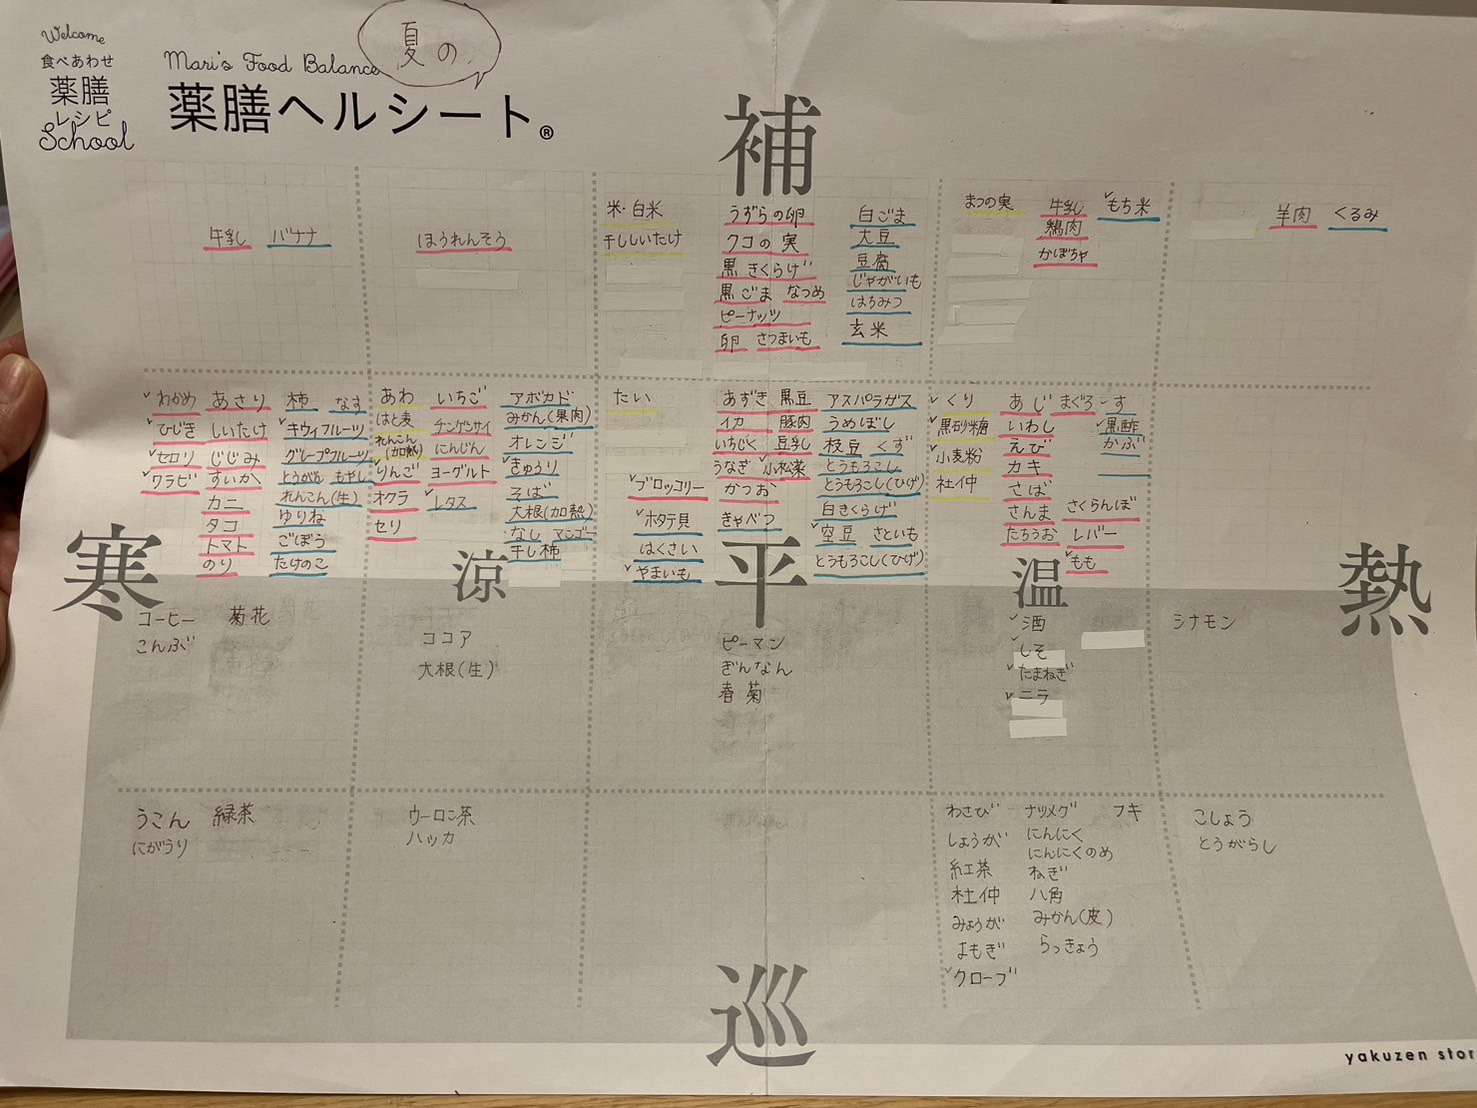 Welcome
食べあわせ
薬膳
レシピ
School
Mari's Food Balance
夏の
薬膳ヘルシート®
補
牛乳 バナナ
ほうれんそう
米・白米
干ししいたけ
うずらの卵
クコの実
黒きくらげ
黒ごま なつめ
ピーナッツ
卵 さつまいも
白ごま
大豆
豆腐
じゃがいも
はちみつ
玄米
まつの実
牛乳
鶏肉
かぼちゃ
もち米
羊肉 くるみ
わかめ
ひじき
セロリ
ワラビ
あさり
しいたけ
しじみ
すいか
カニ
タコ
トマト
のり
柿 なす
キウィフルーツ
グレープフルーツ
とうがん もやし
れんこん(生)
ゆりね
ごぼう
たけのこ
あわ
はと麦
れんこん(加熱)
りんご
オクラ
セリ
いちご
チンゲンサイ
にんじん
ヨーグルト
レタス
アボカド
みかん(果肉)
オレンジ
きゅうり
そば
大根(加熱)
なし マンゴー
干し柿
たい
ブロッコリー
ホタテ貝
はくさい
やまいも
あずき 黒豆
イカ 豚肉
いちじく 豆乳
うなぎ 小松菜
かつお
キャベつ
アスパラガス
うめぼし
枝豆 くず
とうもろこし
とうもろこし(ひげ)
白きくらげ
空豆 さといも
とうもろこし(ひげ)
くり
黒砂糖
小麦粉
杜仲
あじ まぐろ
いわし
えび
カキ
さば
さんま
たちうお
さくらんぼ
レバー
もも
す
黒酢
かぶ
寒
涼
平
温
熱
コーヒー 菊花
こんぶ
ココア
大根(生)
ピーマン
ぎんなん
春菊
酒
しそ
たまねぎ
ニラ
シナモン
うこん 緑茶
にがうり
ウーロン茶
ハッカ
わさび
しょうが
紅茶
杜仲
みょうが
よもぎ
クローブ
ナツメグ
にんにく
にんにくのめ
ねぎ
八角
みかん(皮)
らっきょう
フキ
こしょう
とうがらし
巡
yakuzen stor